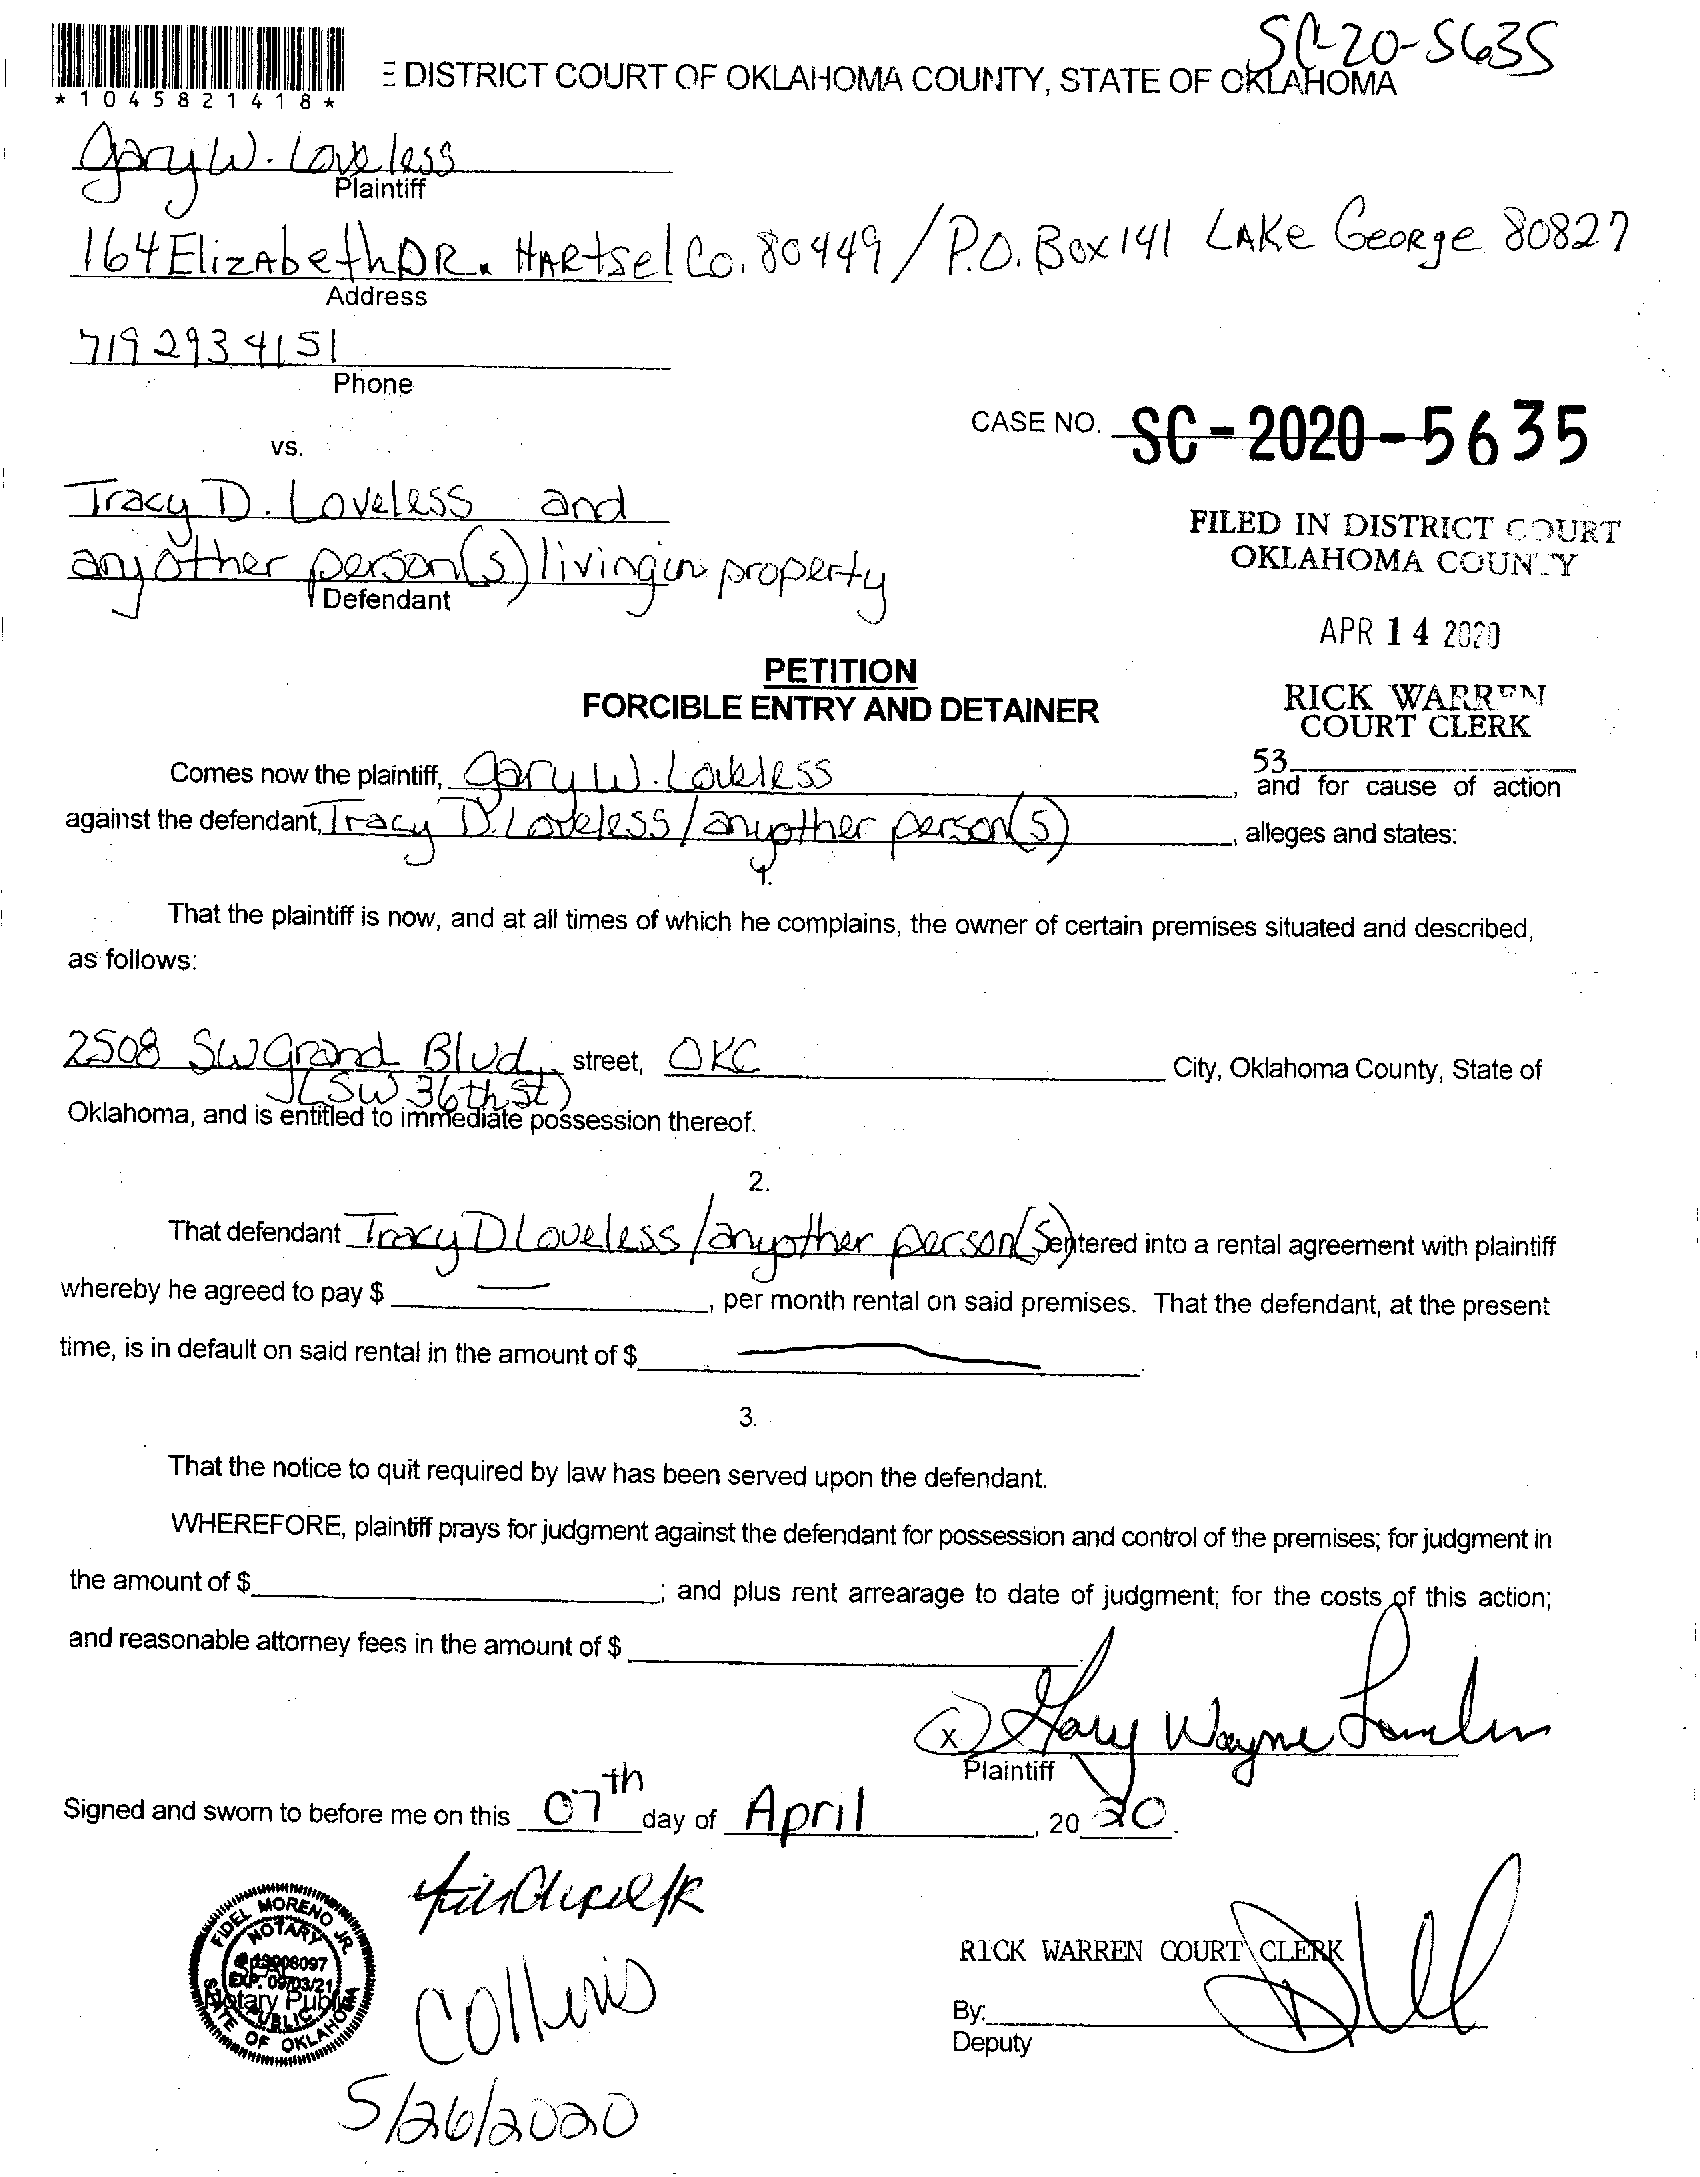 SC-20-5635
*1045821418*
E DISTRICT COURT OF OKLAHOMA COUNTY, STATE OF OKLAHOMA
Gary W. Loveless
Plaintiff
164 Elizabeth DR. Hartsel Co. 80449 / P.O. Box 141 Lake George 80827
Address
719 293 4151
Phone
CASE NO. SC-2020-5635
vs.
Tracy D. Loveless and
any other person(s) living in property
Defendant
FILED IN DISTRICT COURT
OKLAHOMA COUNTY
APR 14 2020
RICK WARREN
COURT CLERK
53
PETITION
FORCIBLE ENTRY AND DETAINER
Comes now the plaintiff, Gary W. Loveless, and for cause of action
against the defendant, Tracy D. Loveless / any other person(s), alleges and states:
1.
That the plaintiff is now, and at all times of which he complains, the owner of certain premises situated and described,
as follows:
2508 SW Grand Blvd, street, OKC City, Oklahoma County, State of
(SW 36th St)
Oklahoma, and is entitled to immediate possession thereof.
2.
That defendant Tracy D Loveless / any other person(s) entered into a rental agreement with plaintiff
whereby he agreed to pay $ —, per month rental on said premises. That the defendant, at the present
time, is in default on said rental in the amount of $ —.
3.
That the notice to quit required by law has been served upon the defendant.
WHEREFORE, plaintiff prays for judgment against the defendant for possession and control of the premises; for judgment in
the amount of $; and plus rent arrearage to date of judgment; for the costs of this action;
and reasonable attorney fees in the amount of $
(x) Gary Wayne
Plaintiff
Signed and sworn to before me on this 07th day of April, 2020.
FIDEL MORENO JR.
NOTARY
EXP. 09/03/21
Notary Public
PUBLIC
STATE OF OKLAHOMA
Collins
5/26/2020
RICK WARREN COURT CLERK
By:
Deputy